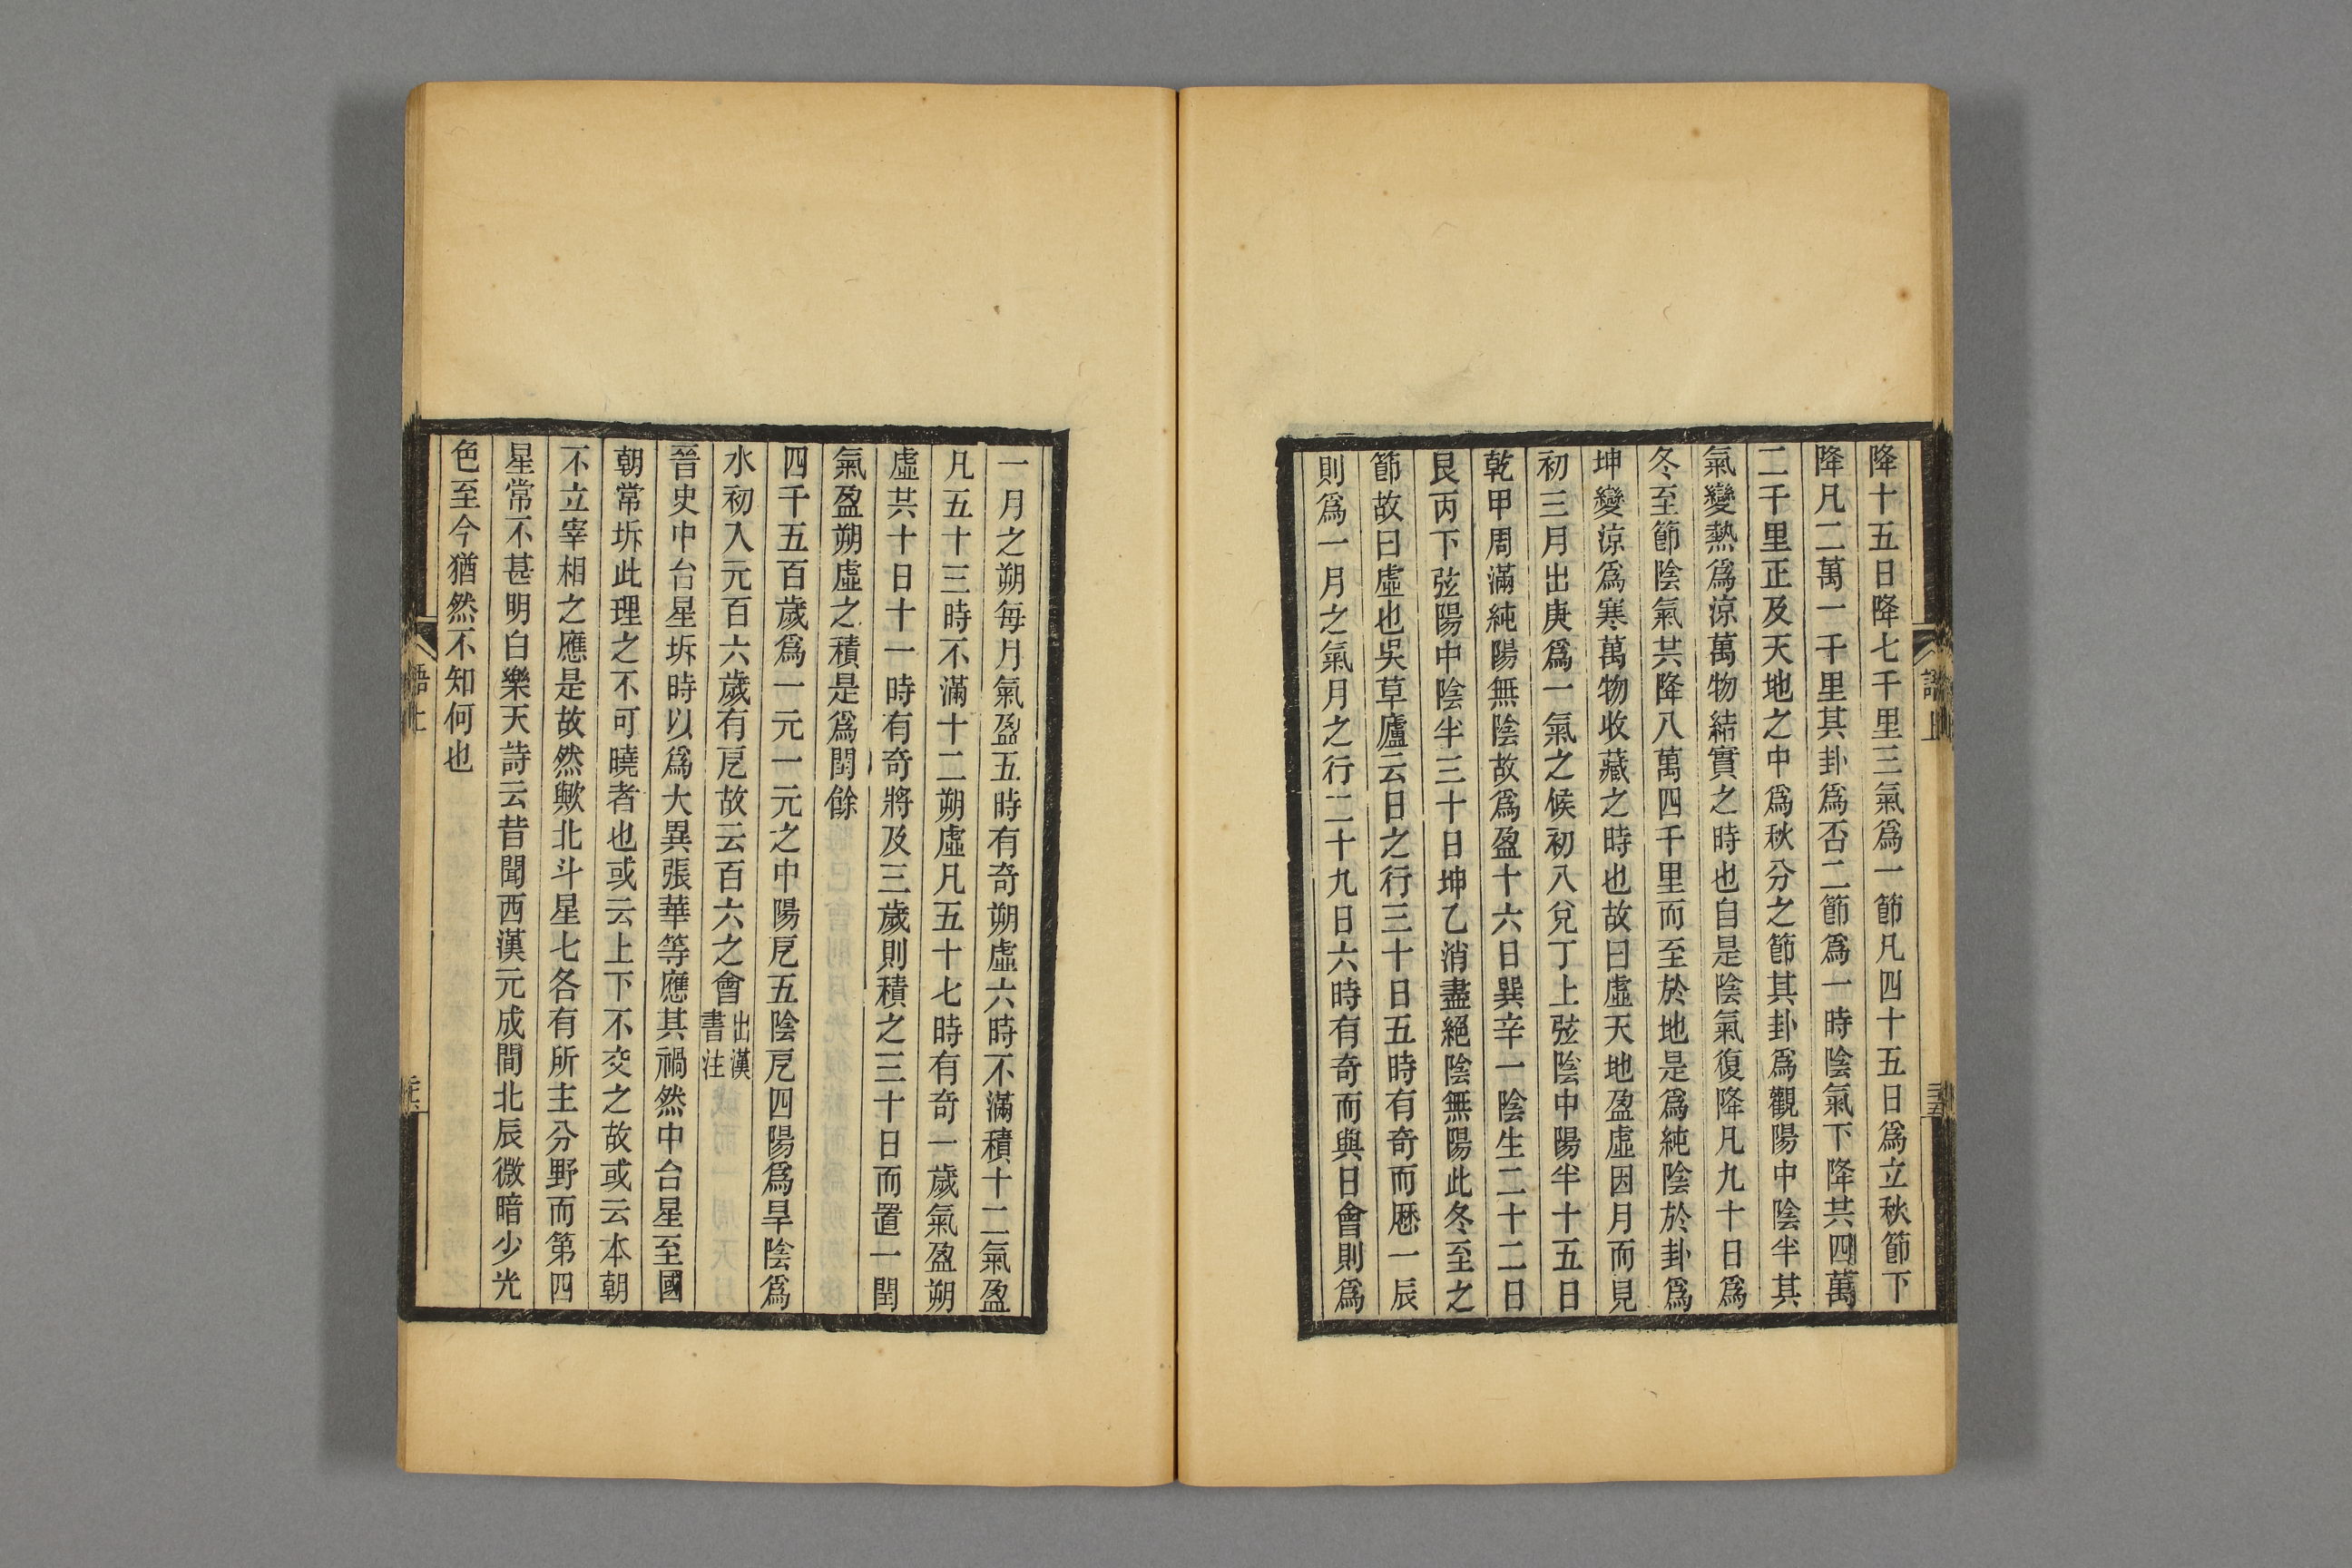 降十五日降七千里三氣爲一節凡四十五日爲立秋節下
降凡二萬一千里其卦爲否二節爲一時陰氣下降共四萬
二千里正及天地之中爲秋分之節其卦爲觀陽中陰半其
氣變熱爲涼萬物結實之時也自是陰氣復降凡九十日爲
冬至節陰氣共降八萬四千里而至於地是爲純陰於卦爲
坤變涼爲寒萬物收藏之時也故曰虛天地盈虛因月而見
初三月出庚爲一氣之候初八兌丁上弦陰中陽半十五日
乾甲周滿純陽無陰故爲盈十六日巽辛一陰生二十二日
艮丙下弦陽中陰半三十日坤乙消盡絕陰無陽此冬至之
節故曰虛也吳草廬云日之行三十日五時有奇而歷一辰
則爲一月之氣月之行二十九日六時有奇而與日會則爲
一月之朔每月氣盈五時有奇朔虛六時不滿積十二氣盈
凡五十三時不滿十二朔虛凡五十七時有奇一歲氣盈朔
虛共十日十一時有奇將及三歲則積之三十日而置一閏
氣盈朔虛之積是爲閏餘
四千五百歲爲一元一元之中陽戹五陰戹四陽爲旱陰爲
水初入元百六歲有戹故云百六之會出漢
書注
晉史中台星坼時以爲大異張華等應其禍然中台星至國
朝常坼此理之不可曉者也或云上下不交之故或云本朝
不立宰相之應是故然歟北斗星七各有所主分野而第四
星常不甚明白樂天詩云昔聞西漢元成間北辰微暗少光
色至今猶然不知何也